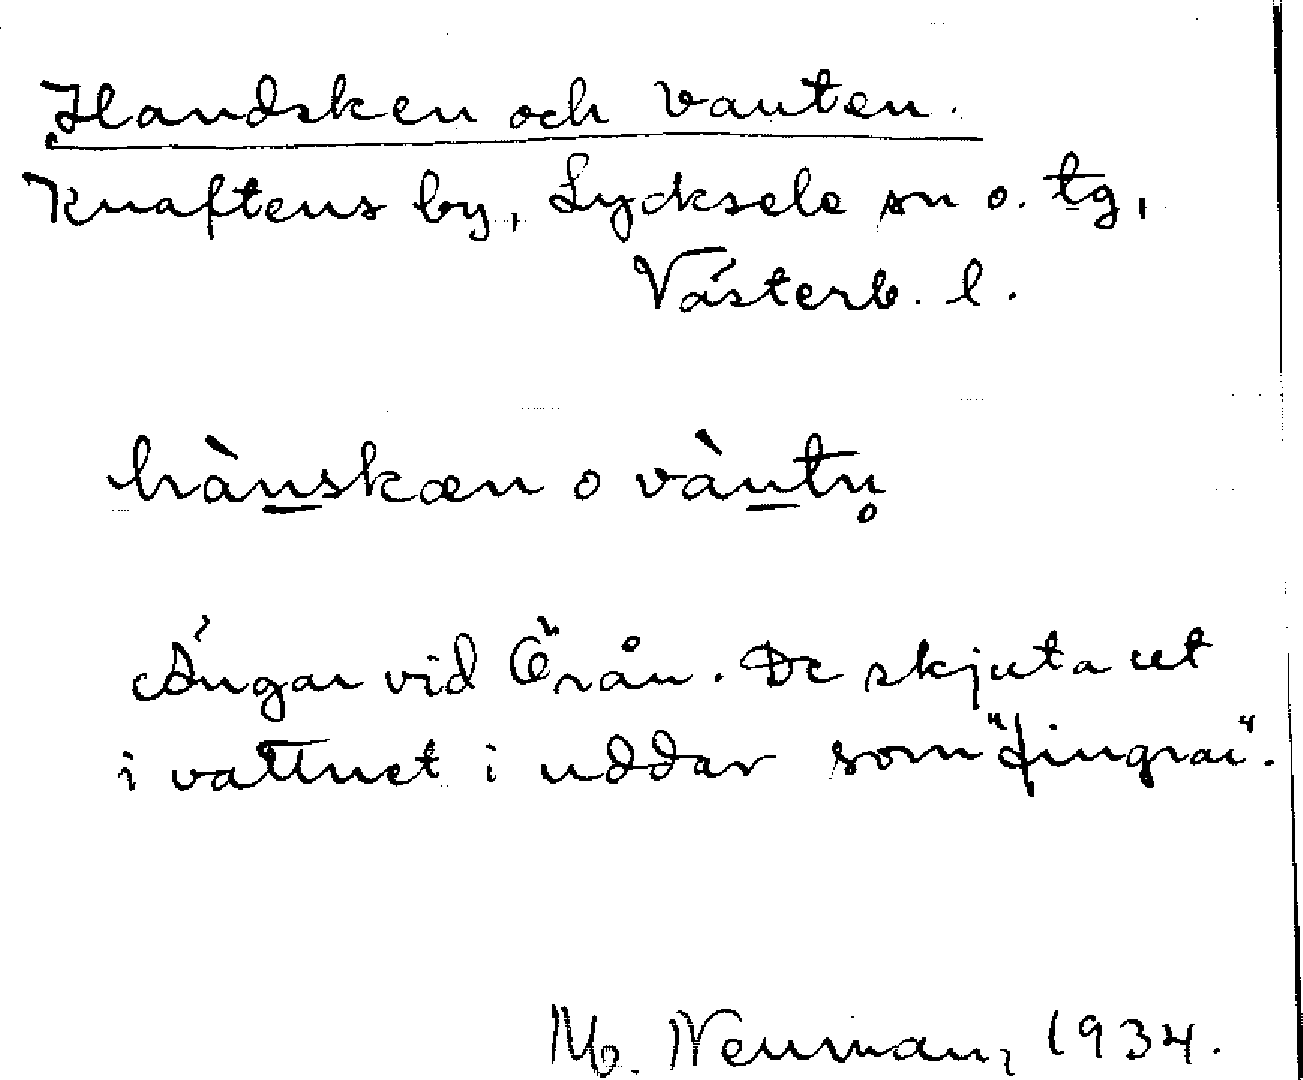 Handsken och vanten.
Knaftens by, Lycksele sn o. tg,
Västerb. l.
hànskæn o vàntn̥
Ängar vid Örån. De skjuta ut
i vattnet i uddar som "fingrar".
M. Neuman, 1934.